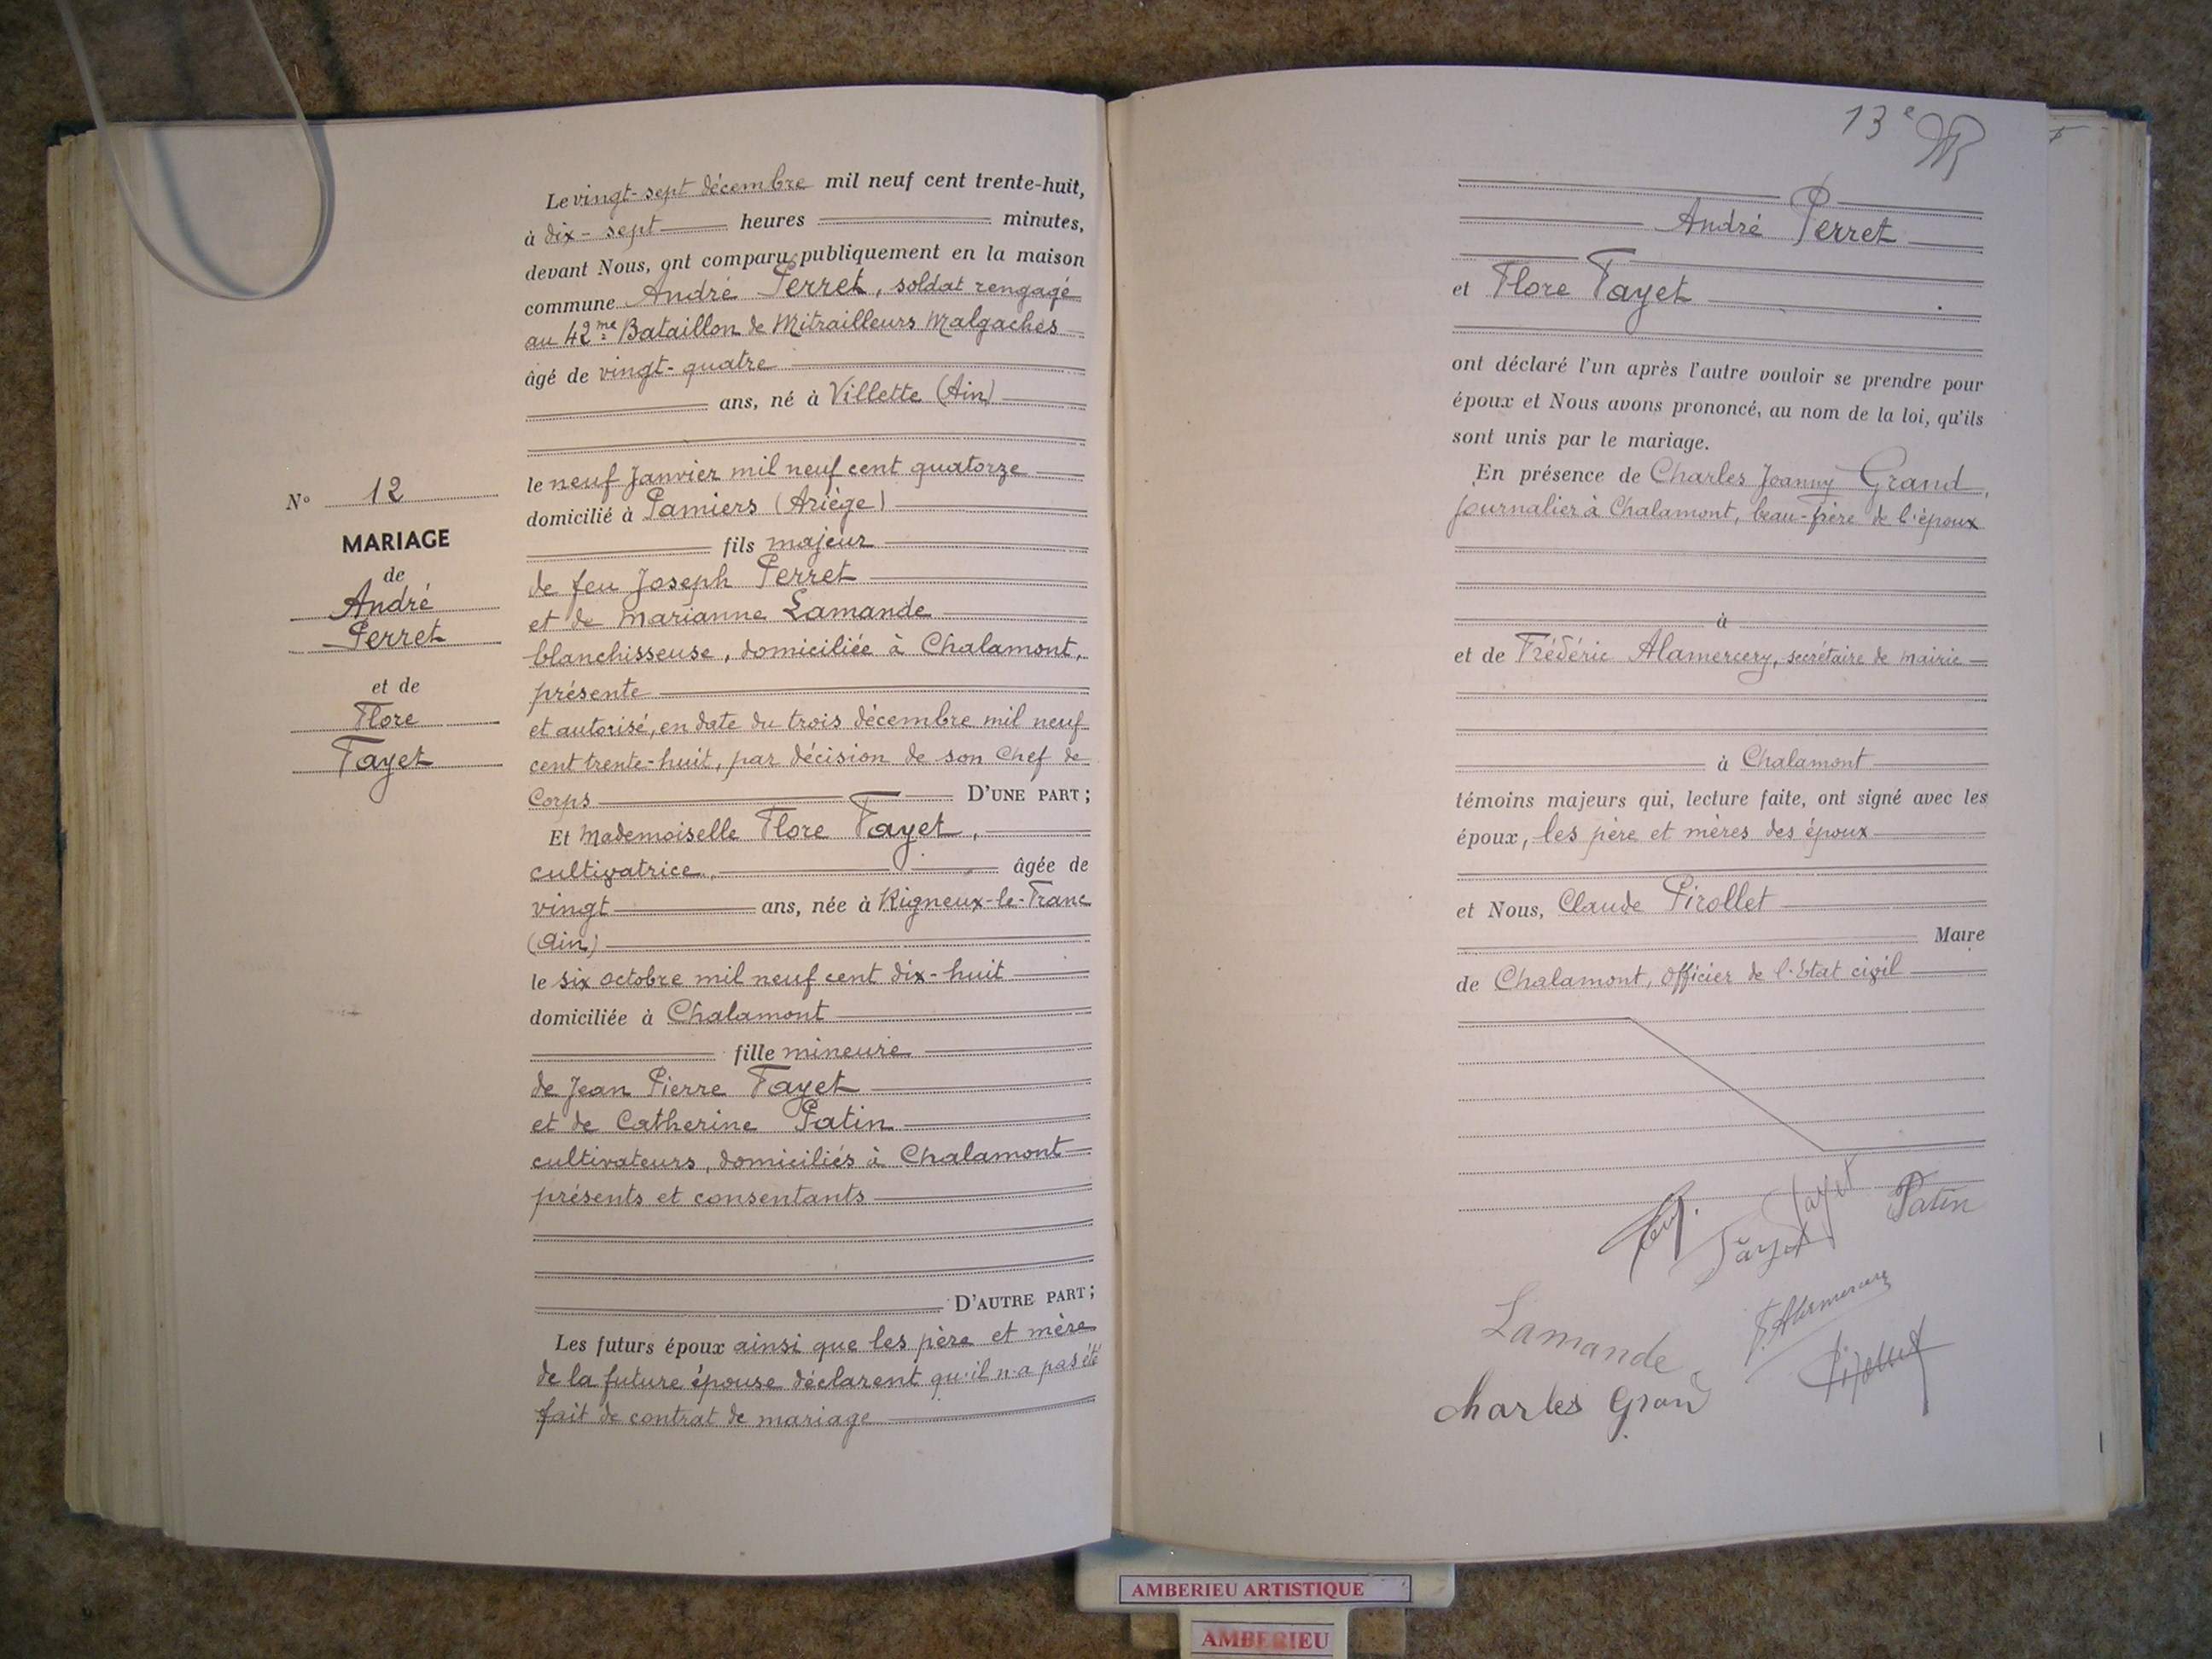 Le vingt-sept décembre mil neuf cent trente-huit,
à dix-sept heures minutes,
devant Nous, ont comparu publiquement en la maison
commune André Perret, soldat rengagé
au 42me Bataillon de Mitrailleurs Malgaches
âgé de vingt-quatre
ans, né à Villette (Ain)
le neuf Janvier mil neuf cent quatorze
domicilié à Pamiers (Ariège)
fils majeur
de feu Joseph Perret
et de Marianne Lamande
blanchisseuse, domiciliée à Chalamont,
présente
et autorisé, en date du trois décembre mil neuf
cent trente-huit, par décision de son Chef de
Corps D'UNE PART;
Et Mademoiselle Flore Fayet,
cultivatrice, âgée de
vingt ans, née à Rigneux-le-Franc
(Ain)
le six octobre mil neuf cent dix-huit
domiciliée à Chalamont
fille mineure
de Jean Pierre Fayet
et de Catherine Patin
cultivateurs, domiciliés à Chalamont
présents et consentants
D'AUTRE PART;
Les futurs époux ainsi que les père et mère
de la future épouse déclarent qu'il n'a pas été
fait de contrat de mariage
N° 12
MARIAGE
de
André
Perret
et de
Flore
Fayet
13e
André Perret
et Flore Fayet
ont déclaré l'un après l'autre vouloir se prendre pour
époux et Nous avons prononcé, au nom de la loi, qu'ils
sont unis par le mariage.
En présence de Charles Joanny Grand,
journalier à Chalamont, beau-frère de l'époux
à
et de Frédéric Alamercery, secrétaire de mairie
à Chalamont
témoins majeurs qui, lecture faite, ont signé avec les
époux, les père et mères des époux
et Nous, Claude Pirollet
Maire
de Chalamont, Officier de l'Etat civil
Fayet
Patin
Fayet
Lamande
F. Alamercery
Pirollet
Charles Grand
AMBERIEU ARTISTIQUE
AMBERIEU